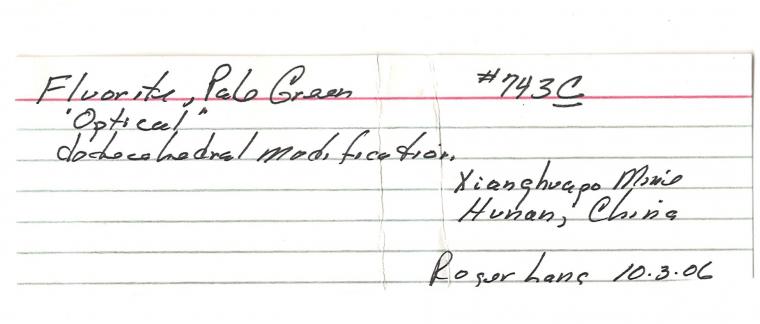 Fluorite, Pale Green #743C
"Optical"
dodecahedral modification.
Xianghuapo Mine
Hunan, China
Roger Lang 10.3.06